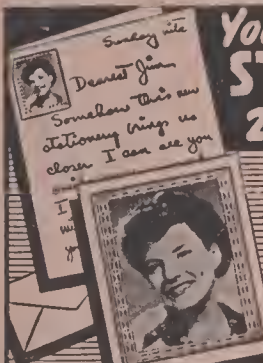 Sunday nite
Dearest Jim
Somehow this new
stationery brings us
closer I can see you
YOU
ST
2